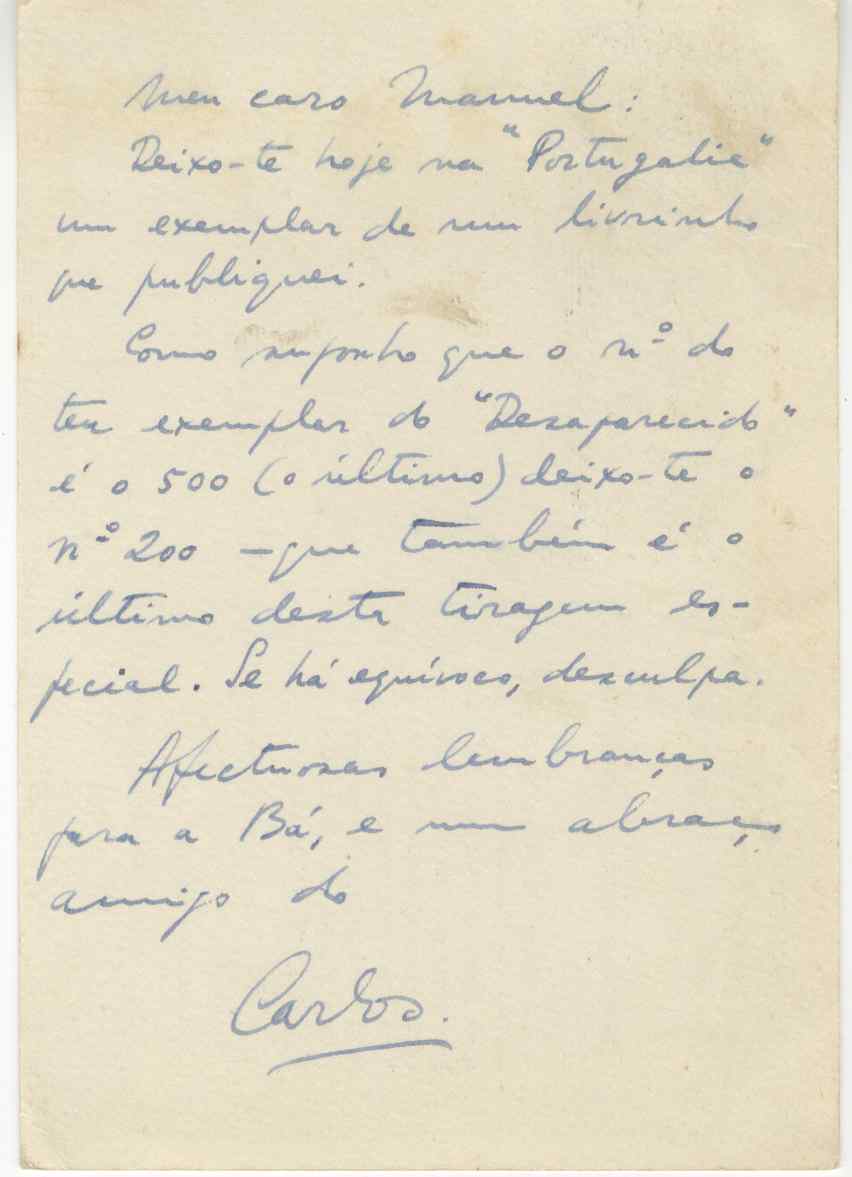 Meu caro Manuel:
Deixo-te hoje na "Portugália"
um exemplar de um livrinho
que publiquei.
Como suponho que o nº do
teu exemplar do "Desaparecido"
é o 500 (o último) deixo-te o
nº 200 – que também é o
último desta tiragem es-
pecial. Se há equívoco, desculpa.
Afectuosas lembranças
para a Bá, e um abraço
amigo do
Carlos.